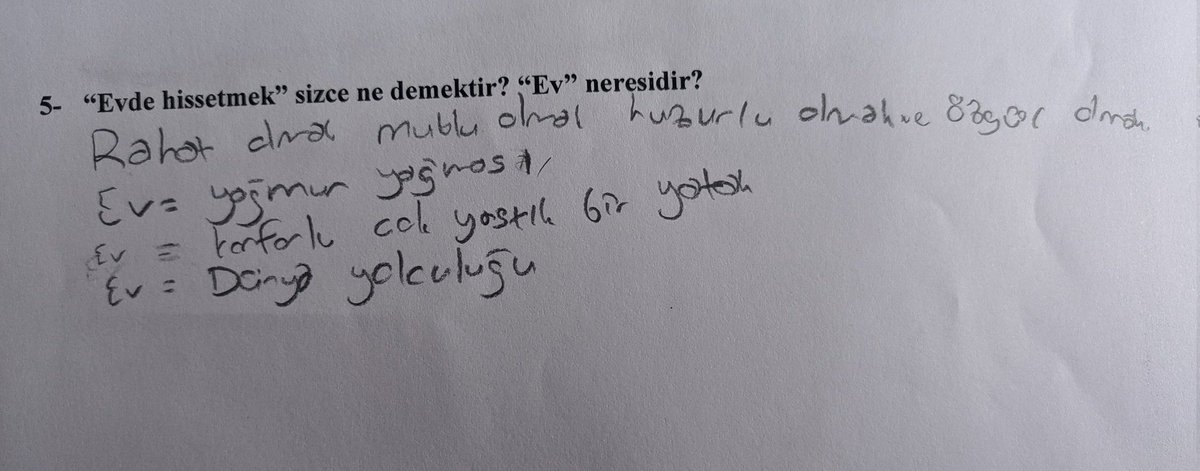 5- “Evde hissetmek” sizce ne demektir? “Ev” neresidir?
Rahat olmak mutlu olmak huzurlu olmak ve özgür olmak.
Ev= yağmur yağması
Ev = konforlu çok yastık bir yatak
Ev = Dünya yolculuğu